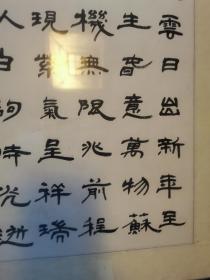 雲日出新年至
生春意萬物蘇
機無限兆前程
現紫氣呈祥瑞
人白駒時光逝